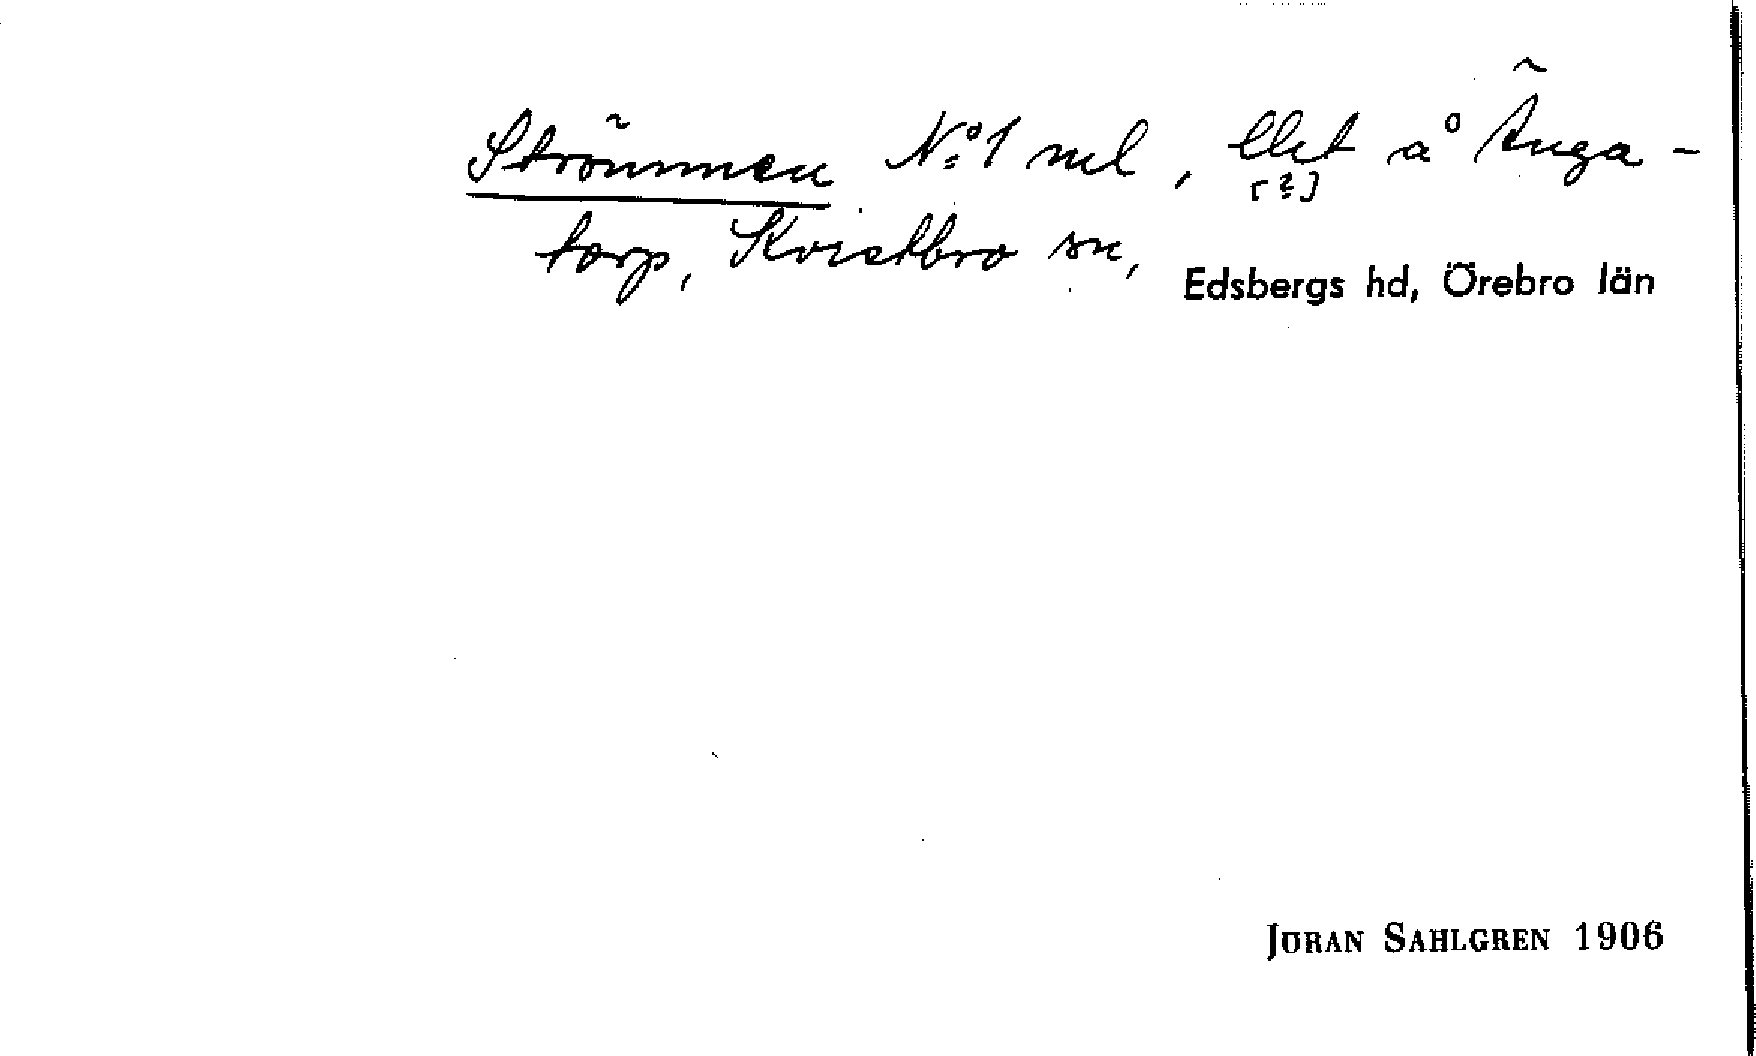 Strömmen Nº1 ml, Clet å Änga-
[?]
torp, Kvistbro sn,
Edsbergs hd, Örebro län
JÖRAN SAHLGREN 1906